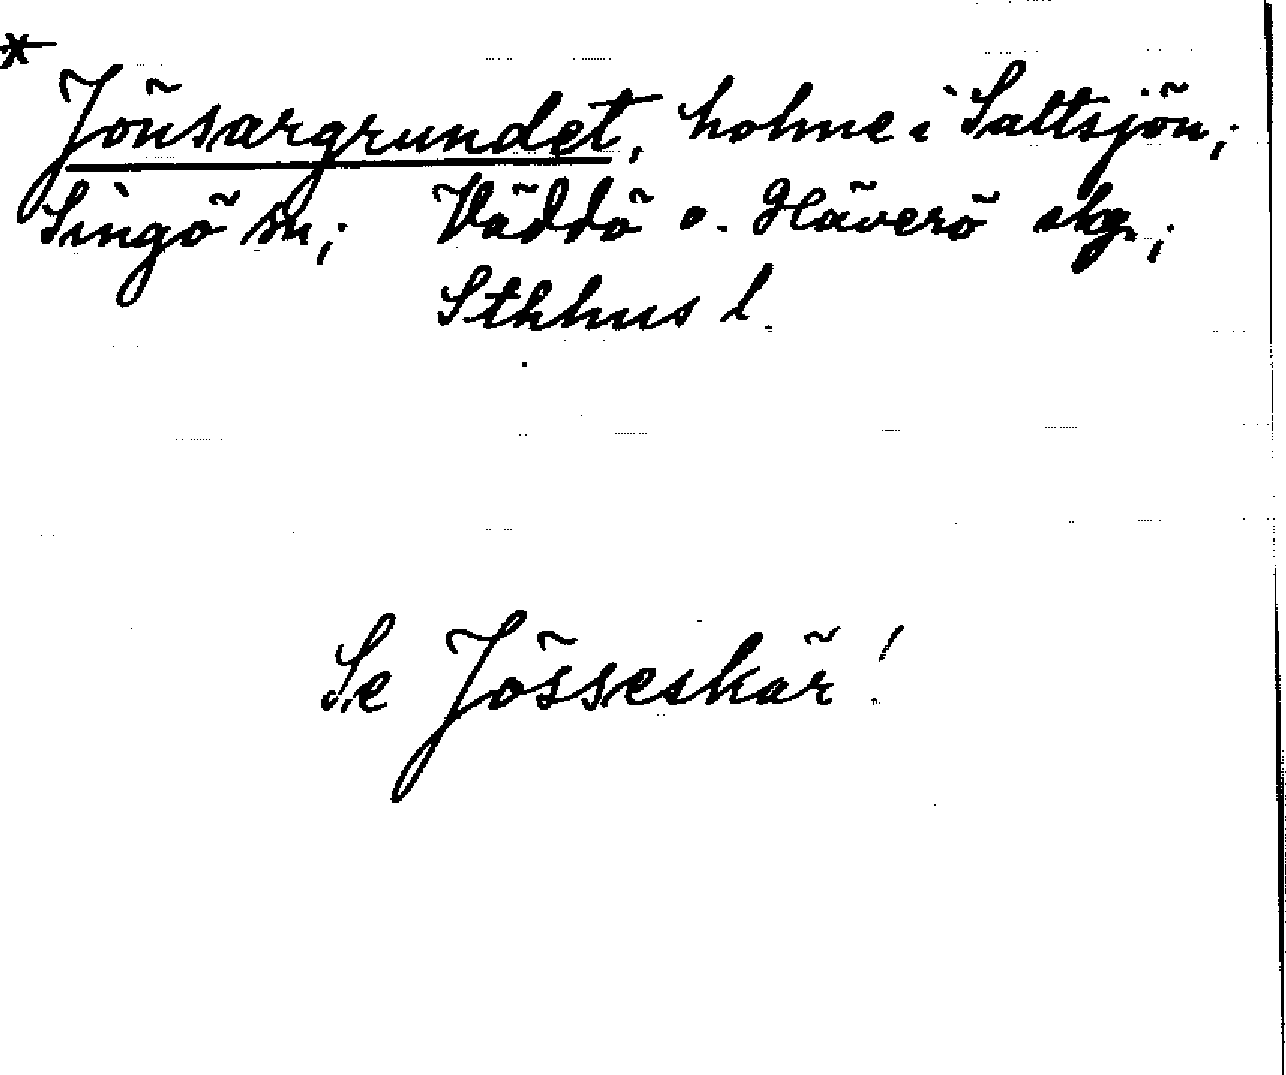 * Jönsargrundet, holme i Saltsjön;
Singö sn; Väddö o. Häverö skg.;
Sthhus l.
Se Jösseskär!